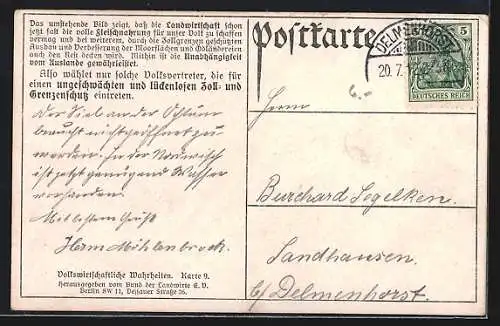 Das umstehende Bild zeigt, daß die Landwirtschaft schon
jetzt fast die volle Fleischnahrung für unser Volk zu schaffen
vermag und bei weiterem, durch die Zollgrenzen geschützten
Ausbau und Verbesserung der Moorflächen und Ödländereien
auch den Rest decken wird. Mithin ist die Unabhängigkeit
vom Auslande gewährleistet.
Also wählet nur solche Volksvertreter, die für
einen ungeschwächten und lückenlosen Zoll- und
Grenzenschutz eintreten.
Postkarte
DELMENHORST
20. 7.
5
DEUTSCHES REICH
6.-
Der Siel an der Ochtum
braucht nicht geöffnet zu
werden. In der
ist jetzt genügend Wasser
vorhanden.
Mit bestem Gruß
Herm Mühlenbrock.
Herrn
Burchard Segelken.
Sandhausen
b/ Delmenhorst.
Volkswirtschaftliche Wahrheiten. Karte 9.
Herausgegeben vom Bund der Landwirte E. V.
Berlin SW 11, Dessauer Straße 26.